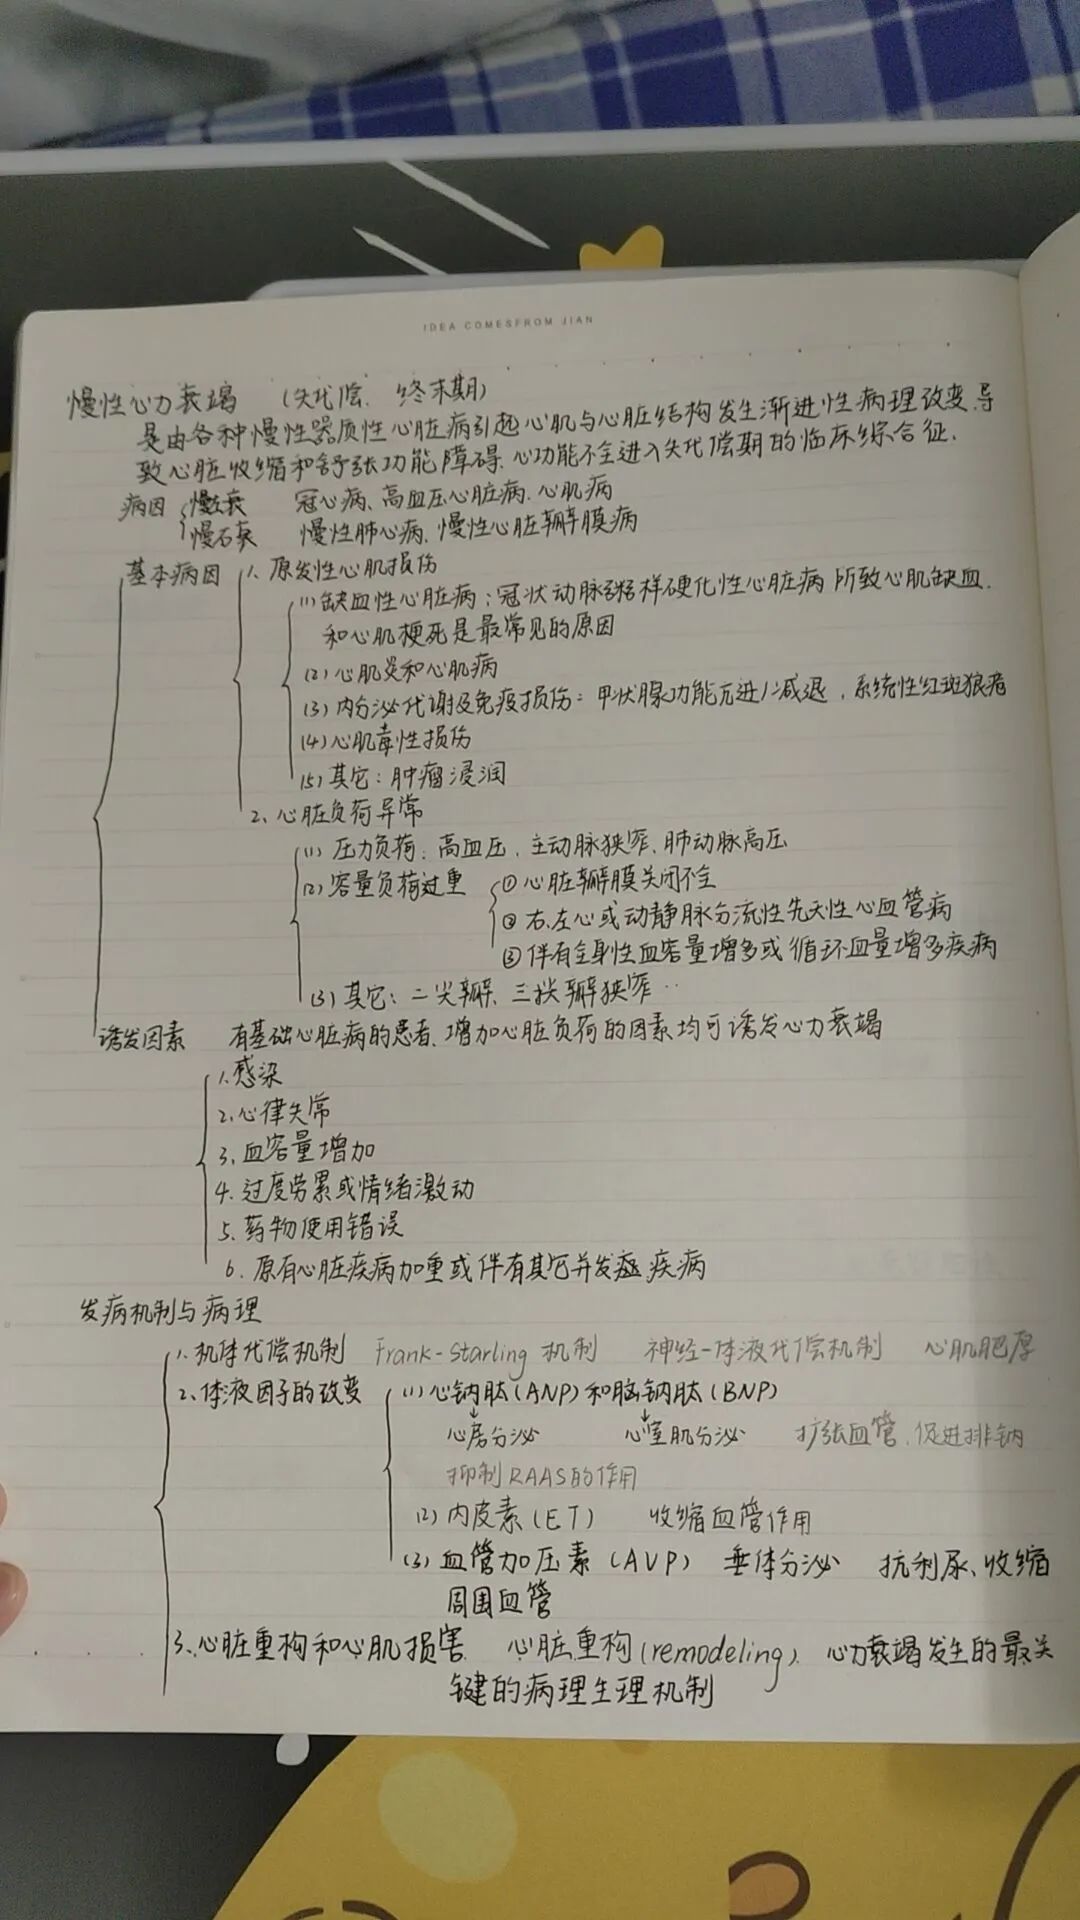 IDEA COMESFROM JIAN
慢性心力衰竭 (失代偿、终末期)
是由各种慢性器质性心脏病引起心肌与心脏结构发生渐进性病理改变,导
致心脏收缩和舒张功能障碍、心功能不全进入失代偿期的临床综合征.
病因 慢左衰 冠心病、高血压心脏病、心肌病
慢右衰 慢性肺心病、慢性心脏瓣膜病
基本病因 1、原发性心肌损伤
(1) 缺血性心脏病:冠状动脉粥样硬化性心脏病所致心肌缺血
和心肌梗死是最常见的原因
(2) 心肌炎和心肌病
(3) 内分泌代谢及免疫损伤:甲状腺功能亢进/减退,系统性红斑狼疮
(4) 心肌毒性损伤
(5) 其它:肿瘤浸润
2、心脏负荷异常
(1) 压力负荷:高血压、主动脉狭窄、肺动脉高压
(2) 容量负荷过重 ① 心脏瓣膜关闭不全
② 右、左心或动静脉分流性先天性心血管病
③ 伴有全身性血容量增多或循环血量增多疾病
(3) 其它:二尖瓣、三尖瓣狭窄..
诱发因素 有基础心脏病的患者、增加心脏负荷的因素均可诱发心力衰竭
1、感染
2、心律失常
3、血容量增加
4、过度劳累或情绪激动
5、药物使用错误
6、原有心脏疾病加重或伴有其它并发症疾病
发病机制与病理
1、机体代偿机制 Frank-Starling 机制 神经-体液代偿机制 心肌肥厚
2、体液因子的改变 (1) 心钠肽(ANP)和脑钠肽(BNP)
↓ ↓
心房分泌 心室肌分泌 扩张血管、促进排钠
抑制RAAS的作用
(2) 内皮素(ET) 收缩血管作用
(3) 血管加压素(AVP) 垂体分泌 抗利尿、收缩
周围血管
3、心脏重构和心肌损害 心脏重构(remodeling)、心力衰竭发生的最关
键的病理生理机制